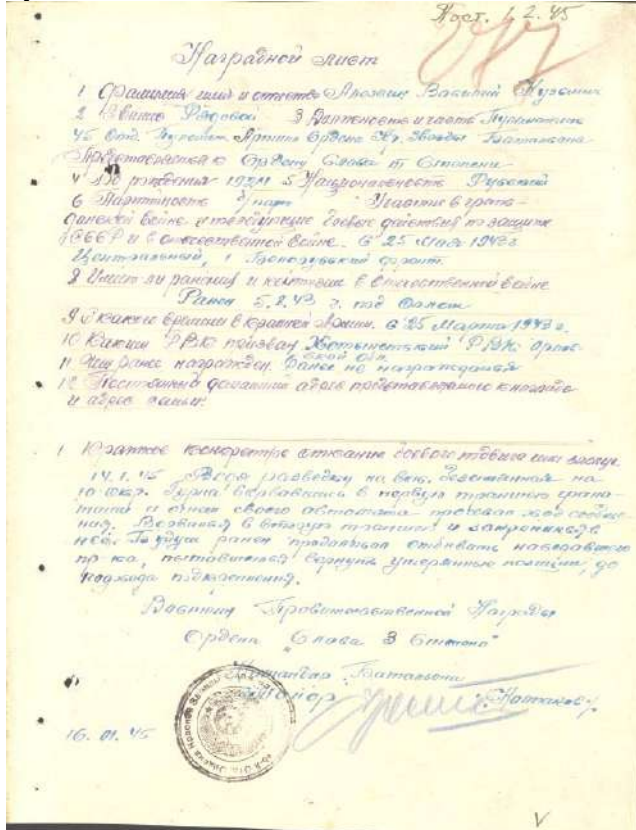 Пост. 1.2.45
Наградной лист
1 Фамилия имя и отчество Василий
2 Звание Рядовой 3 Должность и часть
45 Отд. Пулемет. Кр. Звезды Батальона
Представляется к Ордену Слава III Степени
4 Год рождения 1924 5 Национальность Русский
6 Партийность Участие в граж-
данской войне и последующие боевые действия по защите
СССР и в отечественной войне. С 25 Мая 1943 г
Центральный, 1 Белорусский фронт.
8 Имеет ли ранения и контузии в отечественной войне
Ранен 5.8.43 г. под Орлом
9 С какого времени в красной армии. С 25 Марта 1943 г.
10 Каким РВК призван Хотынетский РВК Орлов-
ской обл.
11 Чем ранее награжден. Ранее не награждался
12 Постоянный домашний адрес представляемого к награде
и адрес семьи:
1 Краткое конкретное описание боевого подвига или заслуг.
14.1.45 Ведя разведку на выс. безымянная на
ворвавшись в первую траншею грана-
тами и огнем своего автомата ход сообще-
ния. Ворвался в вторую траншею и
ней. Будучи ранен продолжал отбивать наседавшего
пр-ка, пытавшегося вернуть утерянные позиции, до
подхода подкрепления.
Достоин Правительственной Награды
Ордена "Слава 3 Степени"
Командир Батальона
Майор
16.01.45